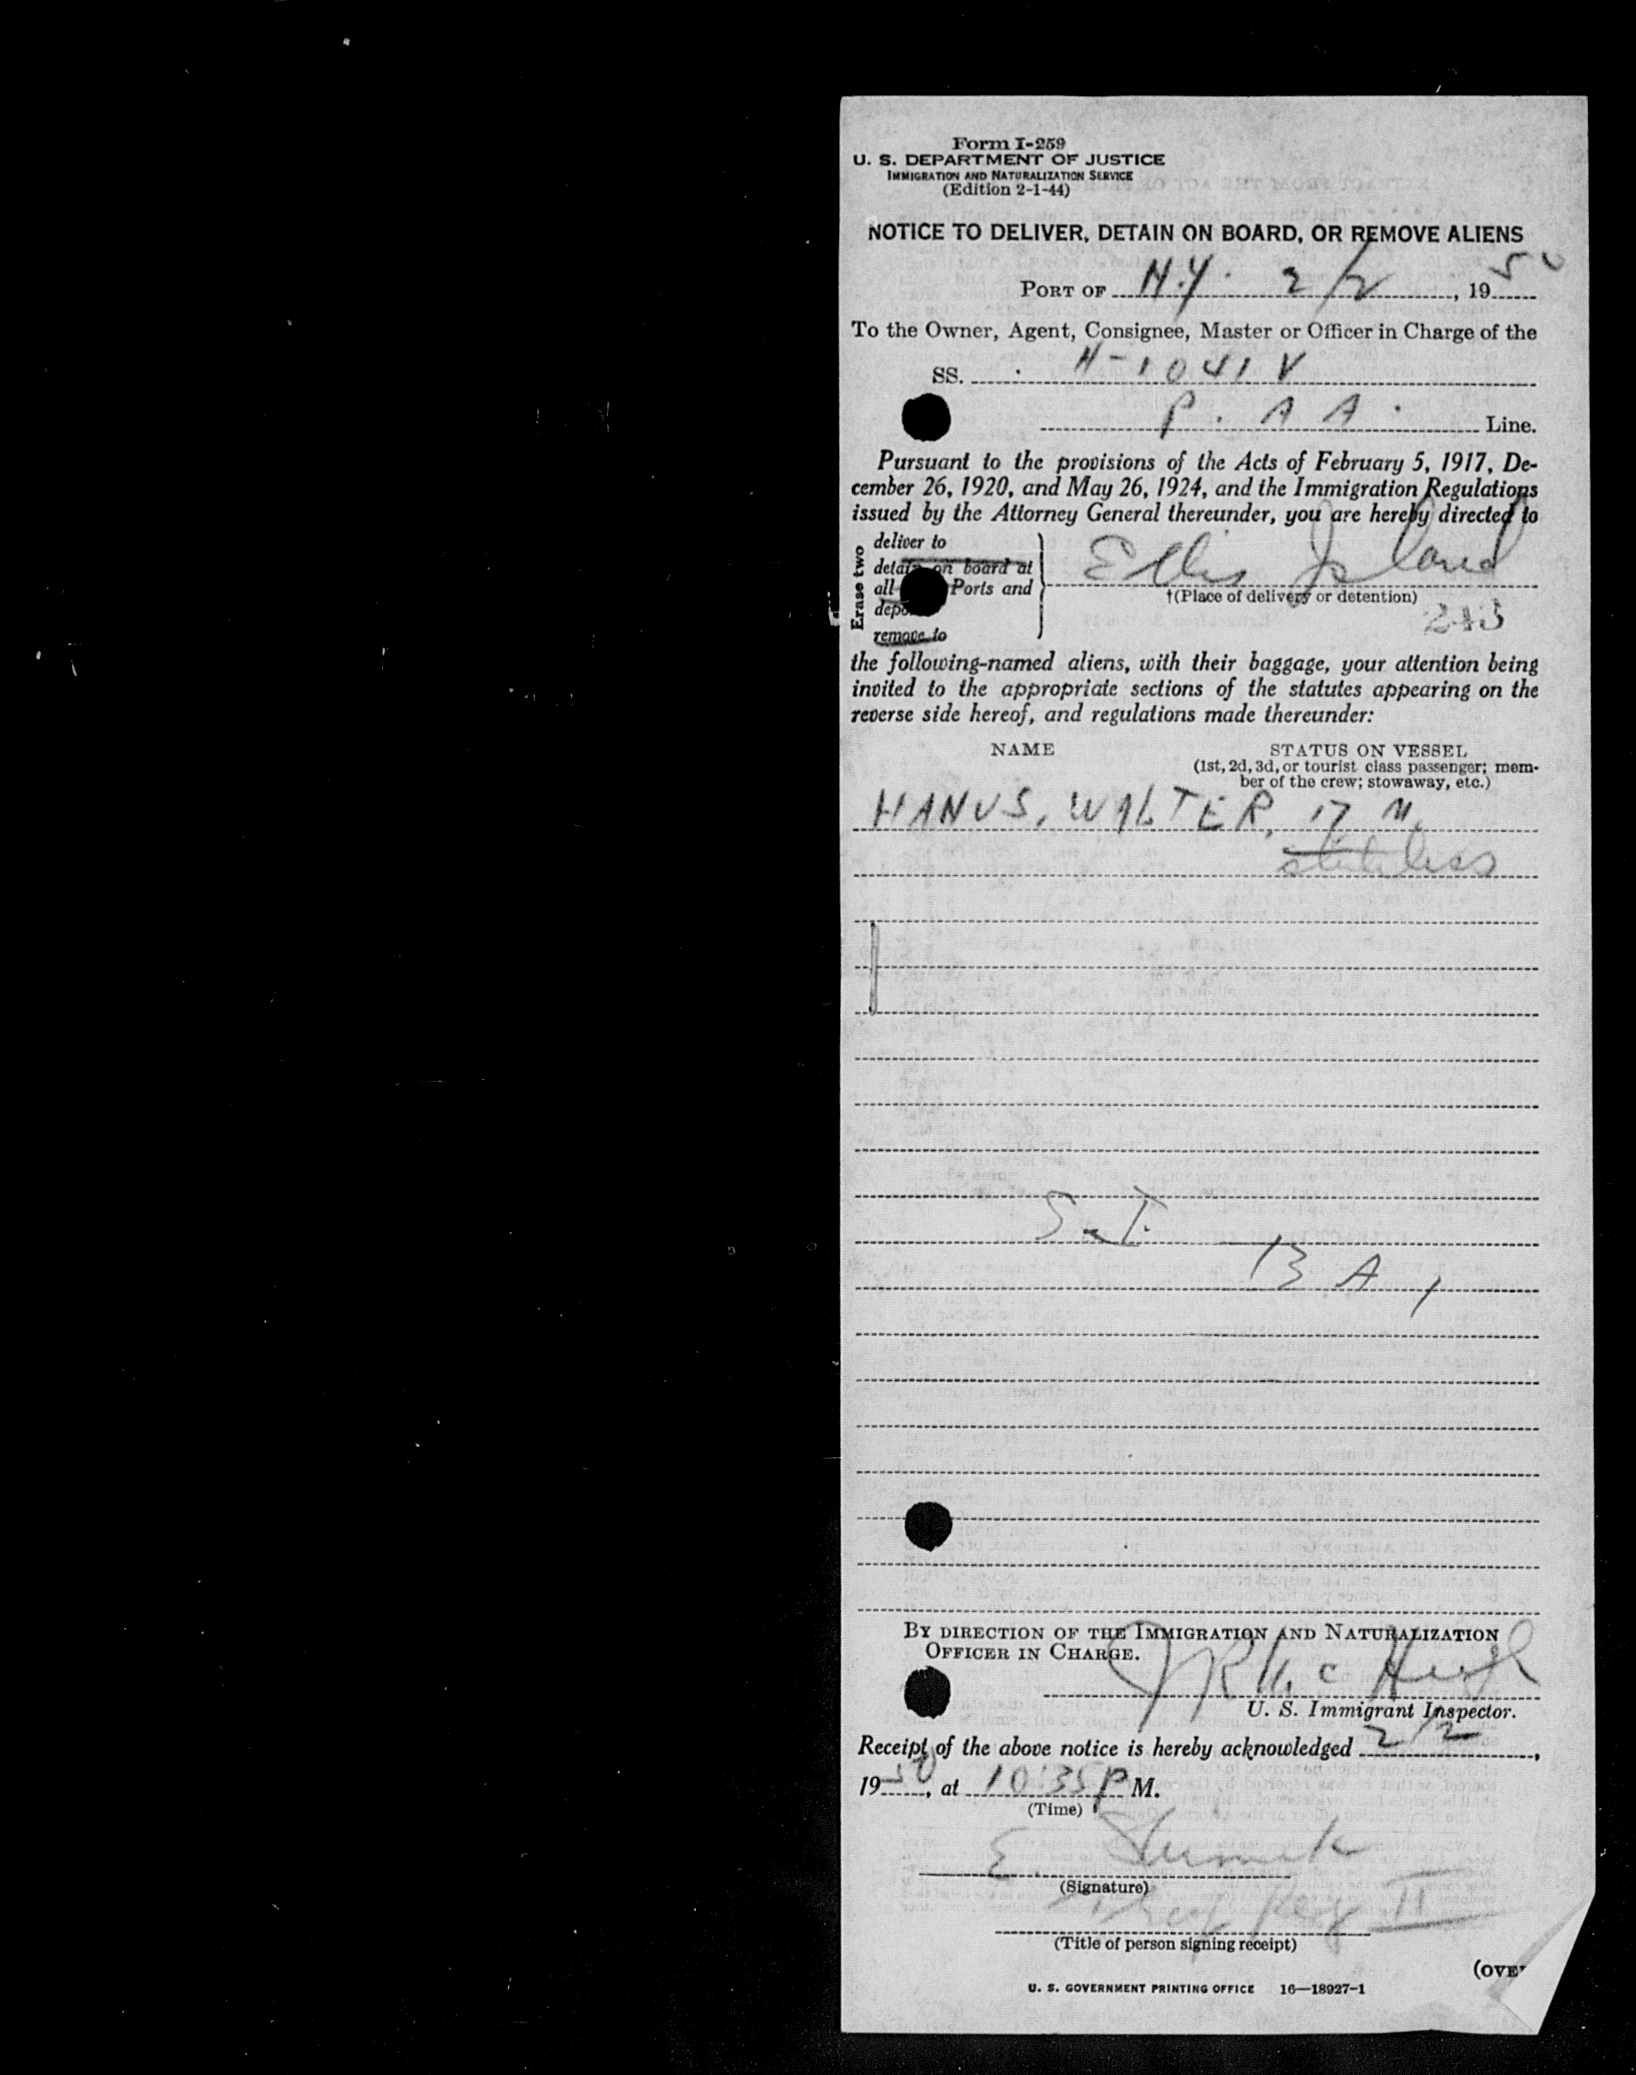 Form I-259
U. S. DEPARTMENT OF JUSTICE
IMMIGRATION AND NATURALIZATION SERVICE
(Edition 2-1-44)
NOTICE TO DELIVER, DETAIN ON BOARD, OR REMOVE ALIENS
PORT OF N.Y. 2/2, 1950
To the Owner, Agent, Consignee, Master or Officer in Charge of the
SS. N-1041V
P. A A. Line.
Pursuant to the provisions of the Acts of February 5, 1917, De-
cember 26, 1920, and May 26, 1924, and the Immigration Regulations
issued by the Attorney General thereunder, you are hereby directed to
Erase two
deliver to
detain on board at
all Ports and
remove to
Ellis Island
†(Place of delivery or detention)
243
the following-named aliens, with their baggage, your attention being
invited to the appropriate sections of the statutes appearing on the
reverse side hereof, and regulations made thereunder:
NAME STATUS ON VESSEL
(1st, 2d, 3d, or tourist class passenger; mem-
ber of the crew; stowaway, etc.)
HANUS, WALTER, 17 M.
stateless
S.I.
13 A
BY DIRECTION OF THE IMMIGRATION AND NATURALIZATION
OFFICER IN CHARGE.
J R McHugh
U. S. Immigrant Inspector.
Receipt of the above notice is hereby acknowledged 2/2,
1950, at 10:35 P M.
(Time)
E.
(Signature)
II
(Title of person signing receipt)
U. S. GOVERNMENT PRINTING OFFICE 16—18927-1